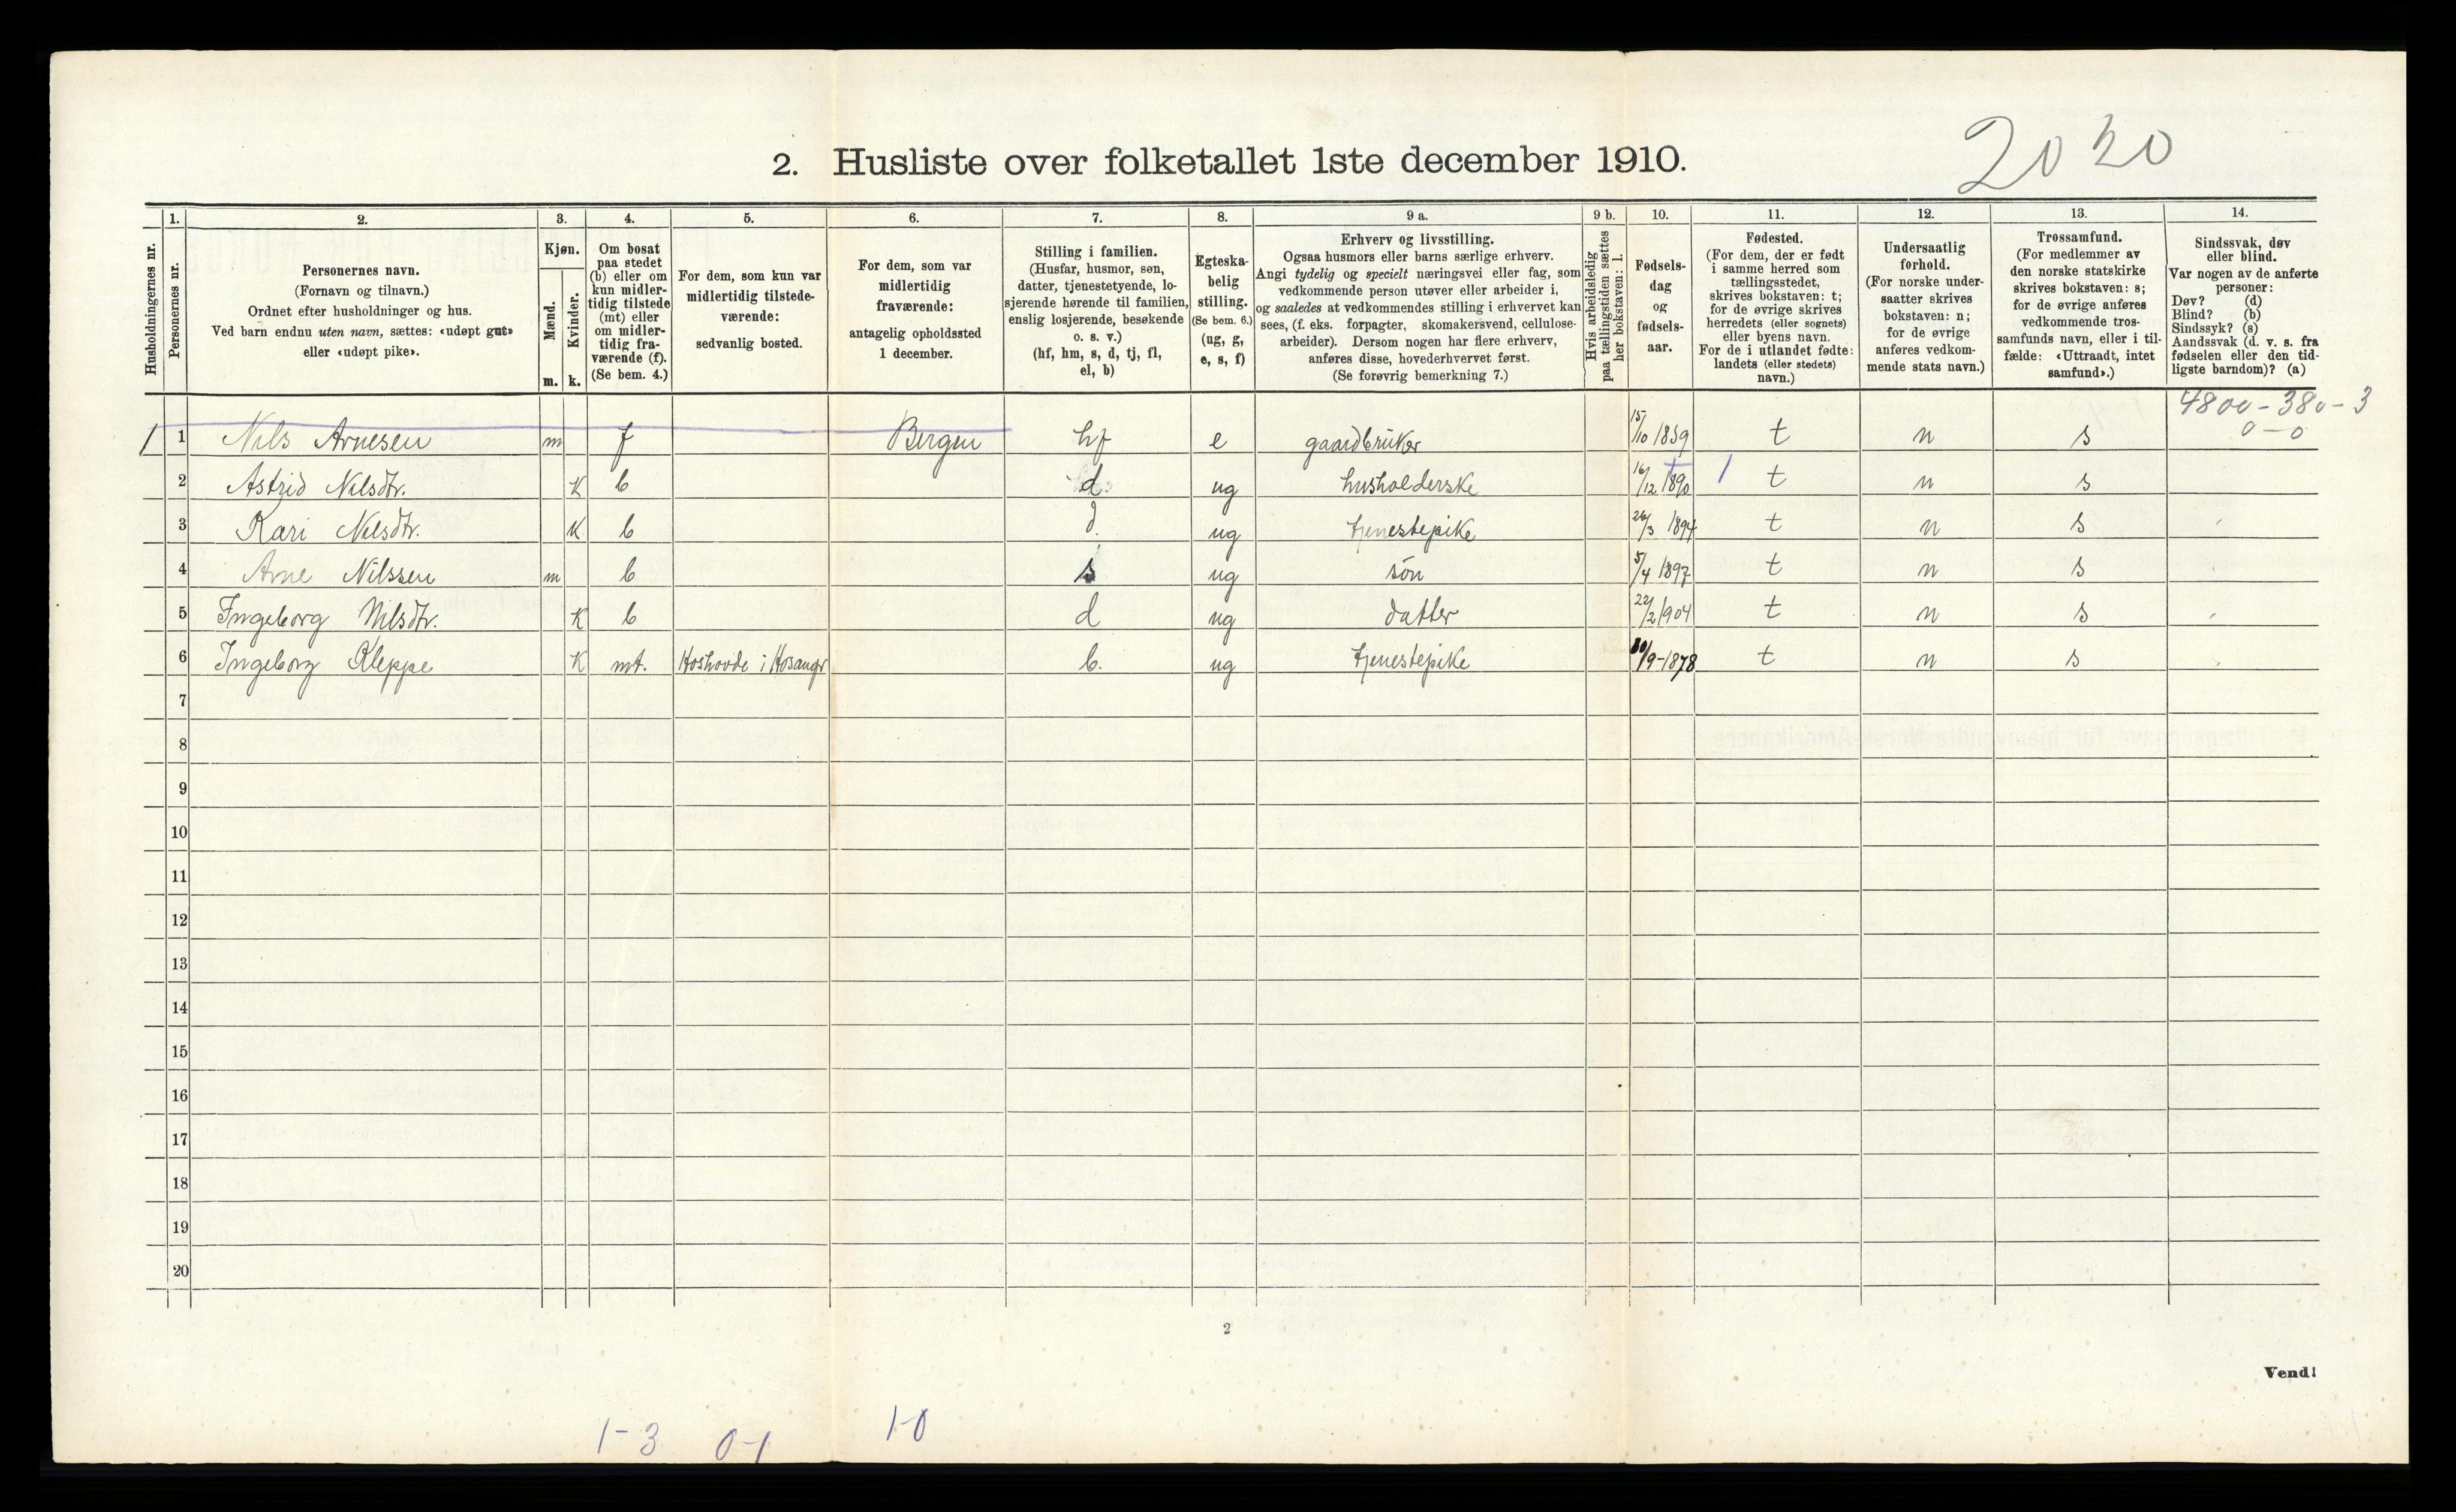 2020
2. Husliste over folketallet 1ste december 1910.
1. 2. 3. 4. 5. 6. 7. 8. 9 a. 9 b. 10. 11. 12. 13. 14.
Husholdningernes nr.
Personernes nr.
Personernes navn.
(Fornavn og tilnavn.)
Ordnet efter husholdninger og hus.
Ved barn endnu uten navn, sættes: «udøpt gut»
eller «udøpt pike».
Kjøn.
Mænd.
Kvinder.
m. k.
Om bosat
paa stedet
(b) eller om
kun midler-
tidig tilstede
(mt) eller
om midler-
tidig fra-
værende (f).
(Se bem. 4.)
For dem, som kun var
midlertidig tilstede-
værende:
sedvanlig bosted.
For dem, som var
midlertidig
fraværende:
antagelig opholdssted
1 december.
Stilling i familien.
(Husfar, husmor, søn,
datter, tjenestetyende, lo-
sjerende hørende til familien,
enslig losjerende, besøkende
o. s. v.)
(hf, hm, s, d, tj, fl,
el, b)
Egteska-
belig
stilling.
(Se bem. 6.)
(ug, g,
e, s, f)
Erhverv og livsstilling.
Ogsaa husmors eller barns særlige erhverv.
Angi tydelig og specielt næringsvei eller fag, som
vedkommende person utøver eller arbeider i,
og saaledes at vedkommendes stilling i erhvervet kan
sees, (f. eks. forpagter, skomakersvend, cellulose-
arbeider). Dersom nogen har flere erhverv,
anføres disse, hovederhvervet først.
(Se forøvrig bemerkning 7.)
Hvis arbeidsledig
paa tællingstiden sættes
her bokstaven: l.
Fødsels-
dag
og
fødsels-
aar.
Fødested.
(For dem, der er født
i samme herred som
tællingsstedet,
skrives bokstaven: t;
for de øvrige skrives
herredets (eller sognets)
eller byens navn.
For de i utlandet fødte:
landets (eller stedets)
navn.)
Undersaatlig
forhold.
(For norske under-
saatter skrives
bokstaven: n;
for de øvrige
anføres vedkom-
mende stats navn.)
Trossamfund.
(For medlemmer av
den norske statskirke
skrives bokstaven: s;
for de øvrige anføres
vedkommende tros-
samfunds navn, eller i til-
fælde: «Uttraadt, intet
samfund».)
Sindssvak, døv
eller blind.
Var nogen av de anførte
personer:
Døv? (d)
Blind? (b)
Sindssyk? (s)
Aandssvak (d. v. s. fra
fødselen eller den tid-
ligste barndom)? (a)
4800 - 380 - 3
0 - 0
1 1 Nils Arnesen m f Bergen hf e gaardbruker 15/10 1859 t n s
2 Astrid Nilsdtr. K b d ug husholderske 16/12 1890 t n s
3 Kari Nilsdtr. K b d. ug tjenestepike 26/3 1894 t n s
4 Arne Nilssen m b s ug søn 5/4 1897 t n s
5 Ingeborg Nilsdtr. K b d ug datter 22/2 1904 t n s
6 Ingeborg Kleppe K mt. Hoshovde i Hosangr b. ug tjenestepike /9-1878 t n s
7
8
9
10
11
12
13
14
15
16
17
18
19
20
2
Vend!
1-3 0-1 1-0